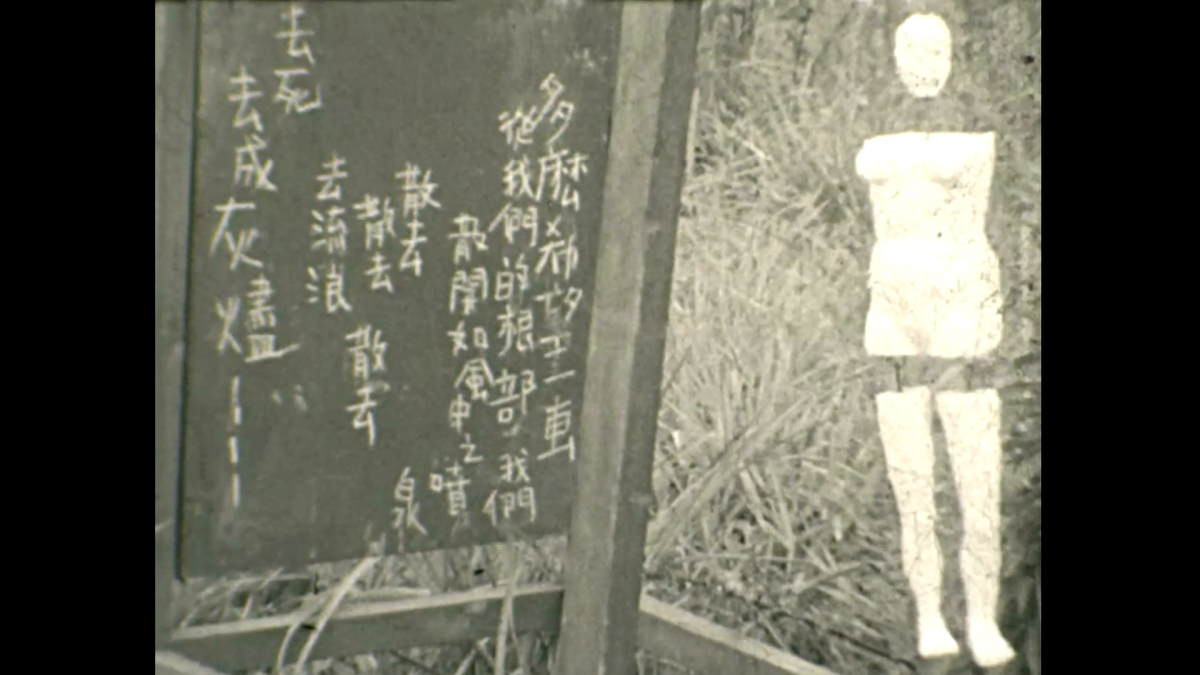 多麼希望一車
從我們的根部，我們
散開如風中之噴
泉
散去
散去 散去
去流浪
去死
去成灰燼———